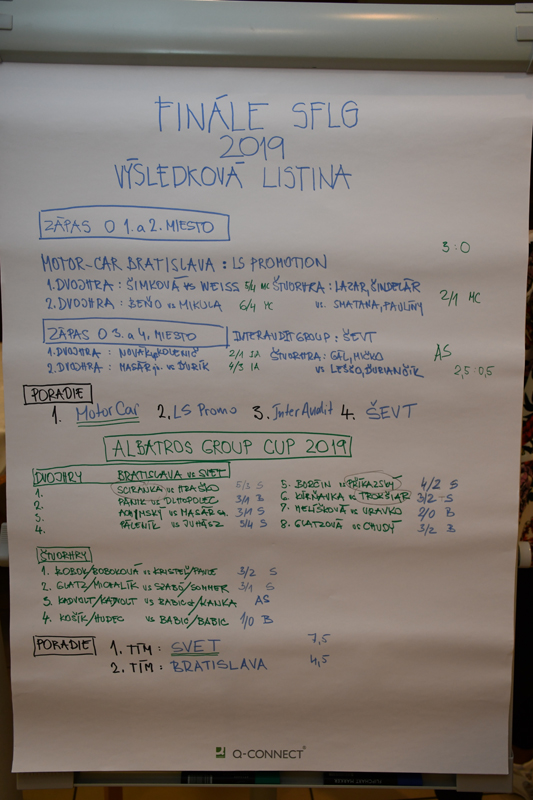 FINÁLE SFLG
2019
VÝSLEDKOVÁ LISTINA
ZÁPAS O 1. a 2. MIESTO
3:0
MOTOR-CAR BRATISLAVA : LS PROMOTION
1. DVOJHRA : ŠIMKOVÁ vs WEISS 5/4 MC ŠTVORHRA : LAZAR, ŠINDELÁR
2. DVOJHRA : ŠEŇO vs MIKULA 6/4 MC vs. SMATANA, PAULÍNY 2/1 MC
ZÁPAS O 3. a 4. MIESTO INTERAUDIT GROUP : ŠEVT
1. DVOJHRA : NOVÁK vs KOLENIČ 2/1 IA ŠTVORHRA : GÁL, MIČKO AS
2. DVOJHRA : MASÁR vs. ĎURÍK 4/3 IA vs LEŠKO, ĎURIANČIK 2,5:0,5
PORADIE
1. MotorCar 2. LS Promo 3. InterAudit 4. ŠEVT
ALBATROS GROUP CUP 2019
DVOJHRY BRATISLAVA vs SVET
1. SCIRANKA vs HRAŠKO 5/3 S 5. BORČIN vs PŘÍKAZSKÝ 4/2 S
2. PÁNIK vs DLHOPOLEC 3/1 B 6. KŔŇAVKA vs TROKŠIAR 3/2 S
3. vs MASÁR 3/1 S 7. MELIŠKOVÁ vs URAVKO 2/0 B
4. PÁLENÍK vs JUHÁSZ 5/4 S 8. GLATZOVÁ vs CHUDÝ 3/2 B
ŠTVORHRY
1. BOBOK/BOBOKOVÁ vs KRISTEĽ/ 3/2 S
2. GLATZ/MICHALÍK vs SZABÓ/SOMMER 3/1 S
3. KADVOLT/KADVOLT vs BABICA/HANKA AS
4. KOŠÍK/HUDEC vs BABIC/BABIC 1/0 B
PORADIE 1. TÍM : SVET 7,5
2. TÍM : BRATISLAVA 4,5
Q-CONNECT